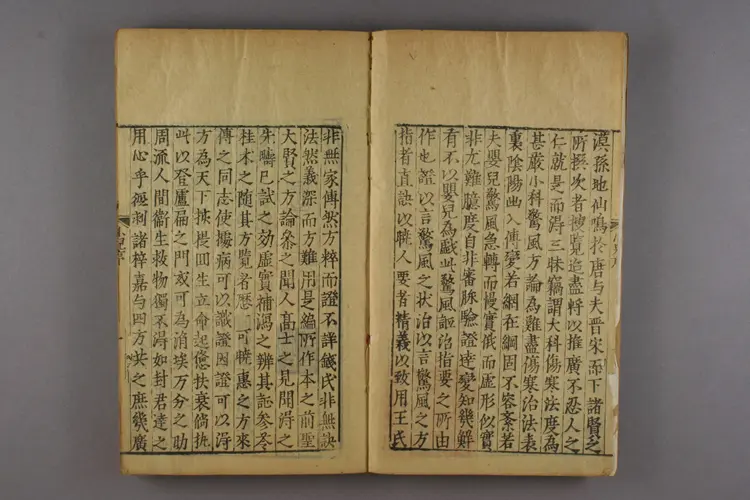 漠孫地仙鳴於唐与夫晉宋而下諸賢之
所撰次者搜覧迨盡將以推廣不忍人之
仁就是而得三昧竊謂大科傷寒法度為
甚嚴小科驚風方論為難盡傷寒治法表
裏陰陽幽入傳變若網在綱固不容紊若
夫嬰兒驚風急轉而慢實俄而虚形似實
非尤難臆度自非審脉驗證達變知幾鮮
有不以嬰兒為戯此驚風証治指要之所由
作也證以言驚風之状治以言驚風之方
指者直訣以職人要者精義以致用王氏
非無家傳然方粹而證不詳錢氏非無訣
法然義深而方難用是編所作本之前聖
大賢之方論叅之聞人髙士之見聞得之
先疇已試之効虚實補瀉之辨其証参苓
桂术之随其方覧者歴可暁惠之方来
傳之同志使據病可以識證因證可以得
方為天下挾提囬生立命起憊扶衰倘執
此以登盧扁之門或可為消埃万分之助
周流人間衛生救物獨不得如封君達之
用心乎復刋諸梓嘉与四方共之庶幾廣